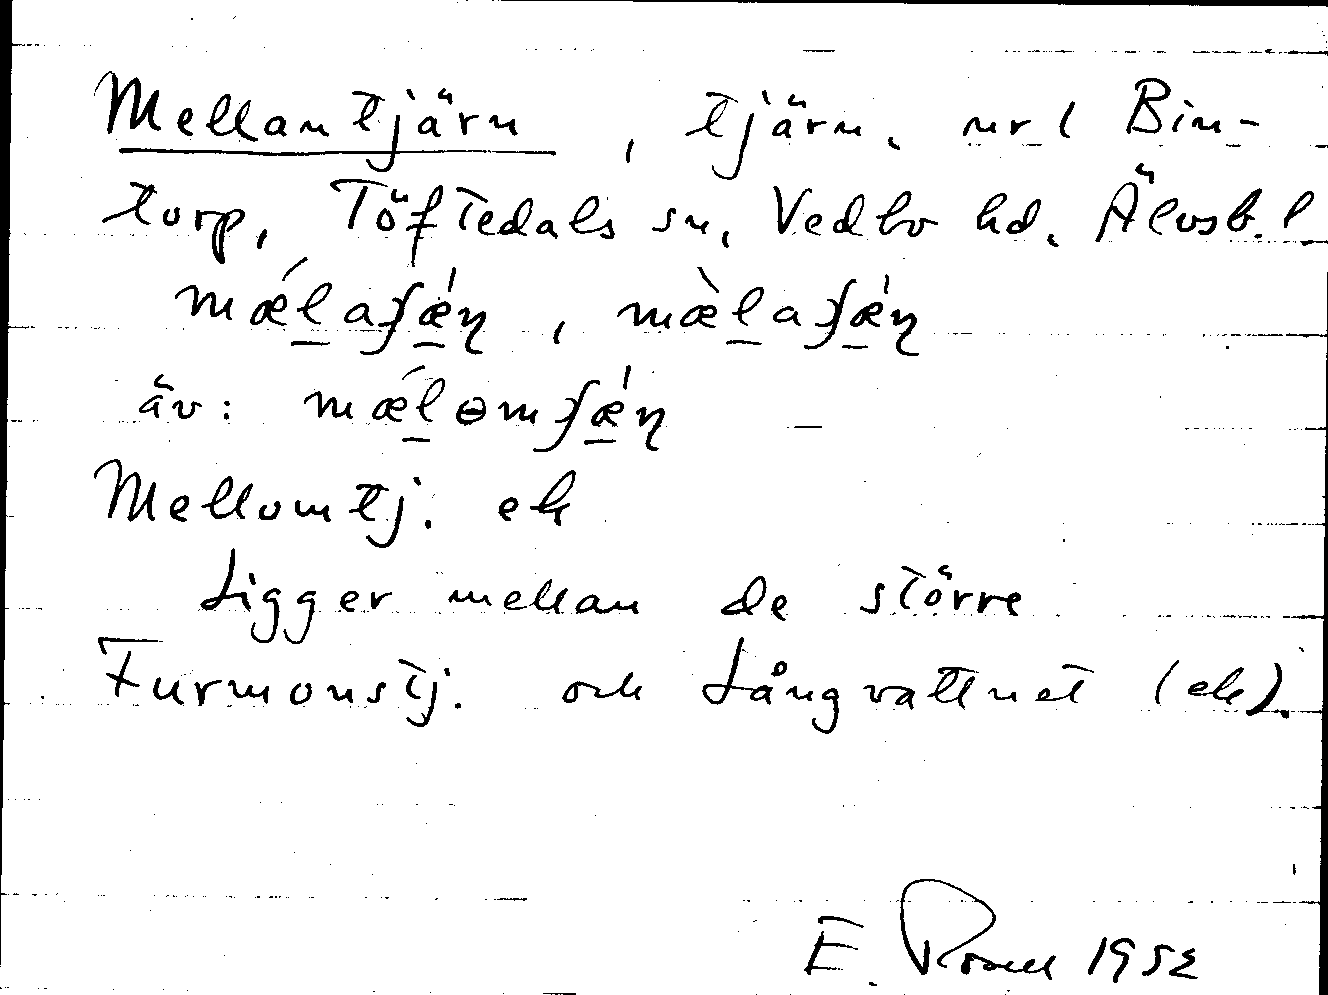 Mellantjärn, tjärn, nrl Bin-
torp, Töftedals sn, Vedbo hd, Älvsb. l
mǽl̲aʃǽ̲ɳ, mæ̀l̲aʃǽ̲ɳ
äv: mǽl̲ɵmʃǽ̲ɳ
Mellomtj. ek
Ligger mellan de större
Furmonstj. och Långvattnet (ek).
E. 1952